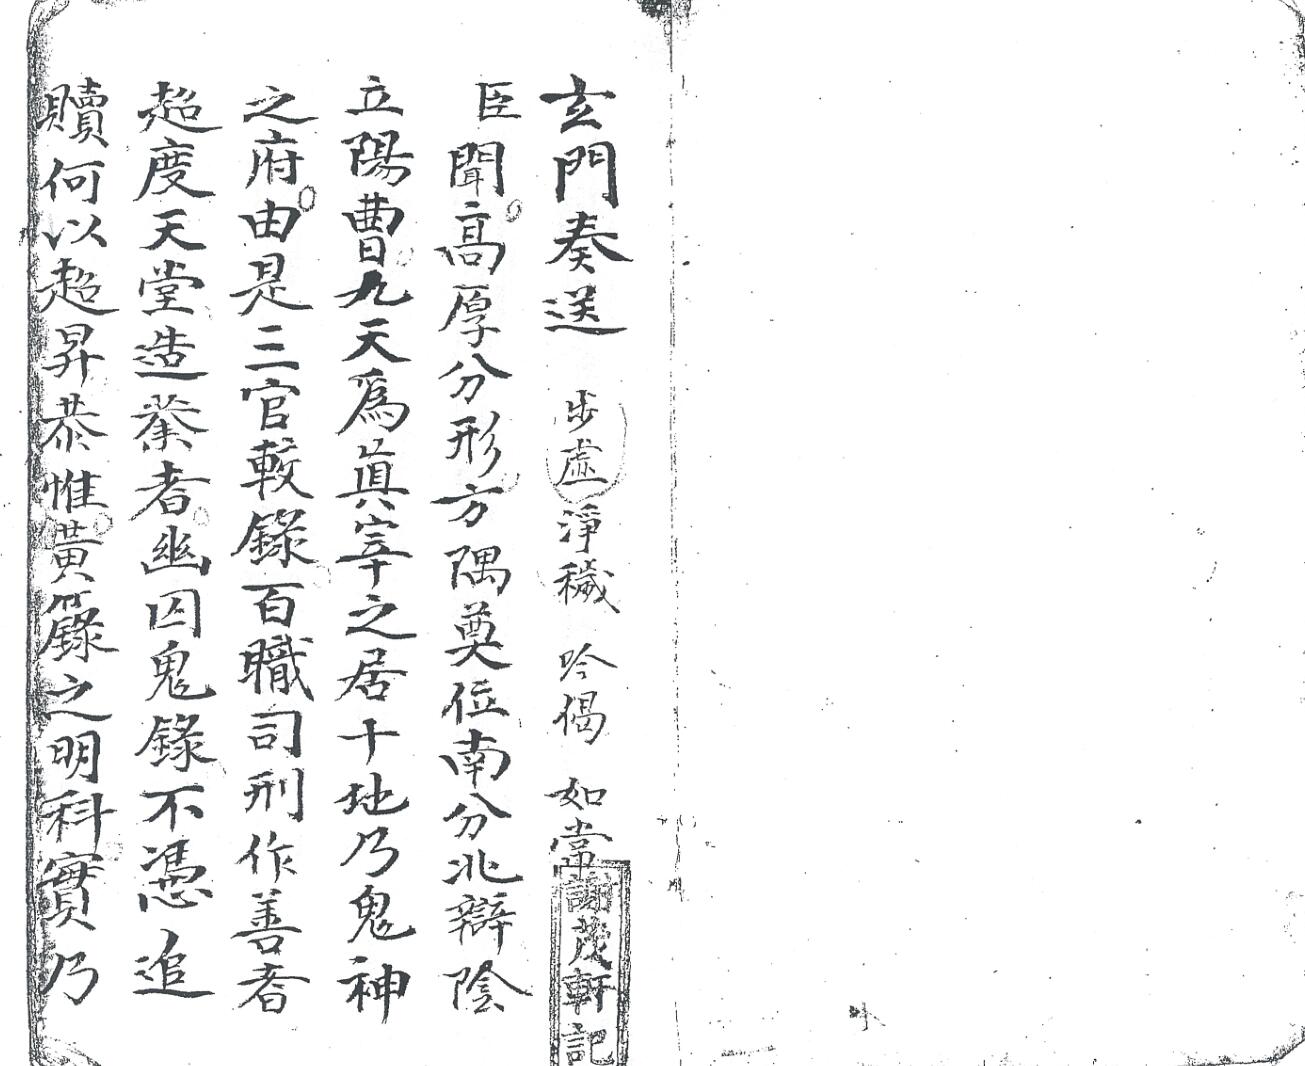 玄門奏送　步虛　淨穢　吟偈　如常
謝茂軒記
臣聞高厚分形方隅奠位南分北辯陰
立陽曹九天爲眞宰之居十地乃鬼神
之府由是三官較錄百職司刑作善者
超度天堂造業者幽囚鬼錄不憑追
贖何以超昇恭惟黃籙之明科實乃